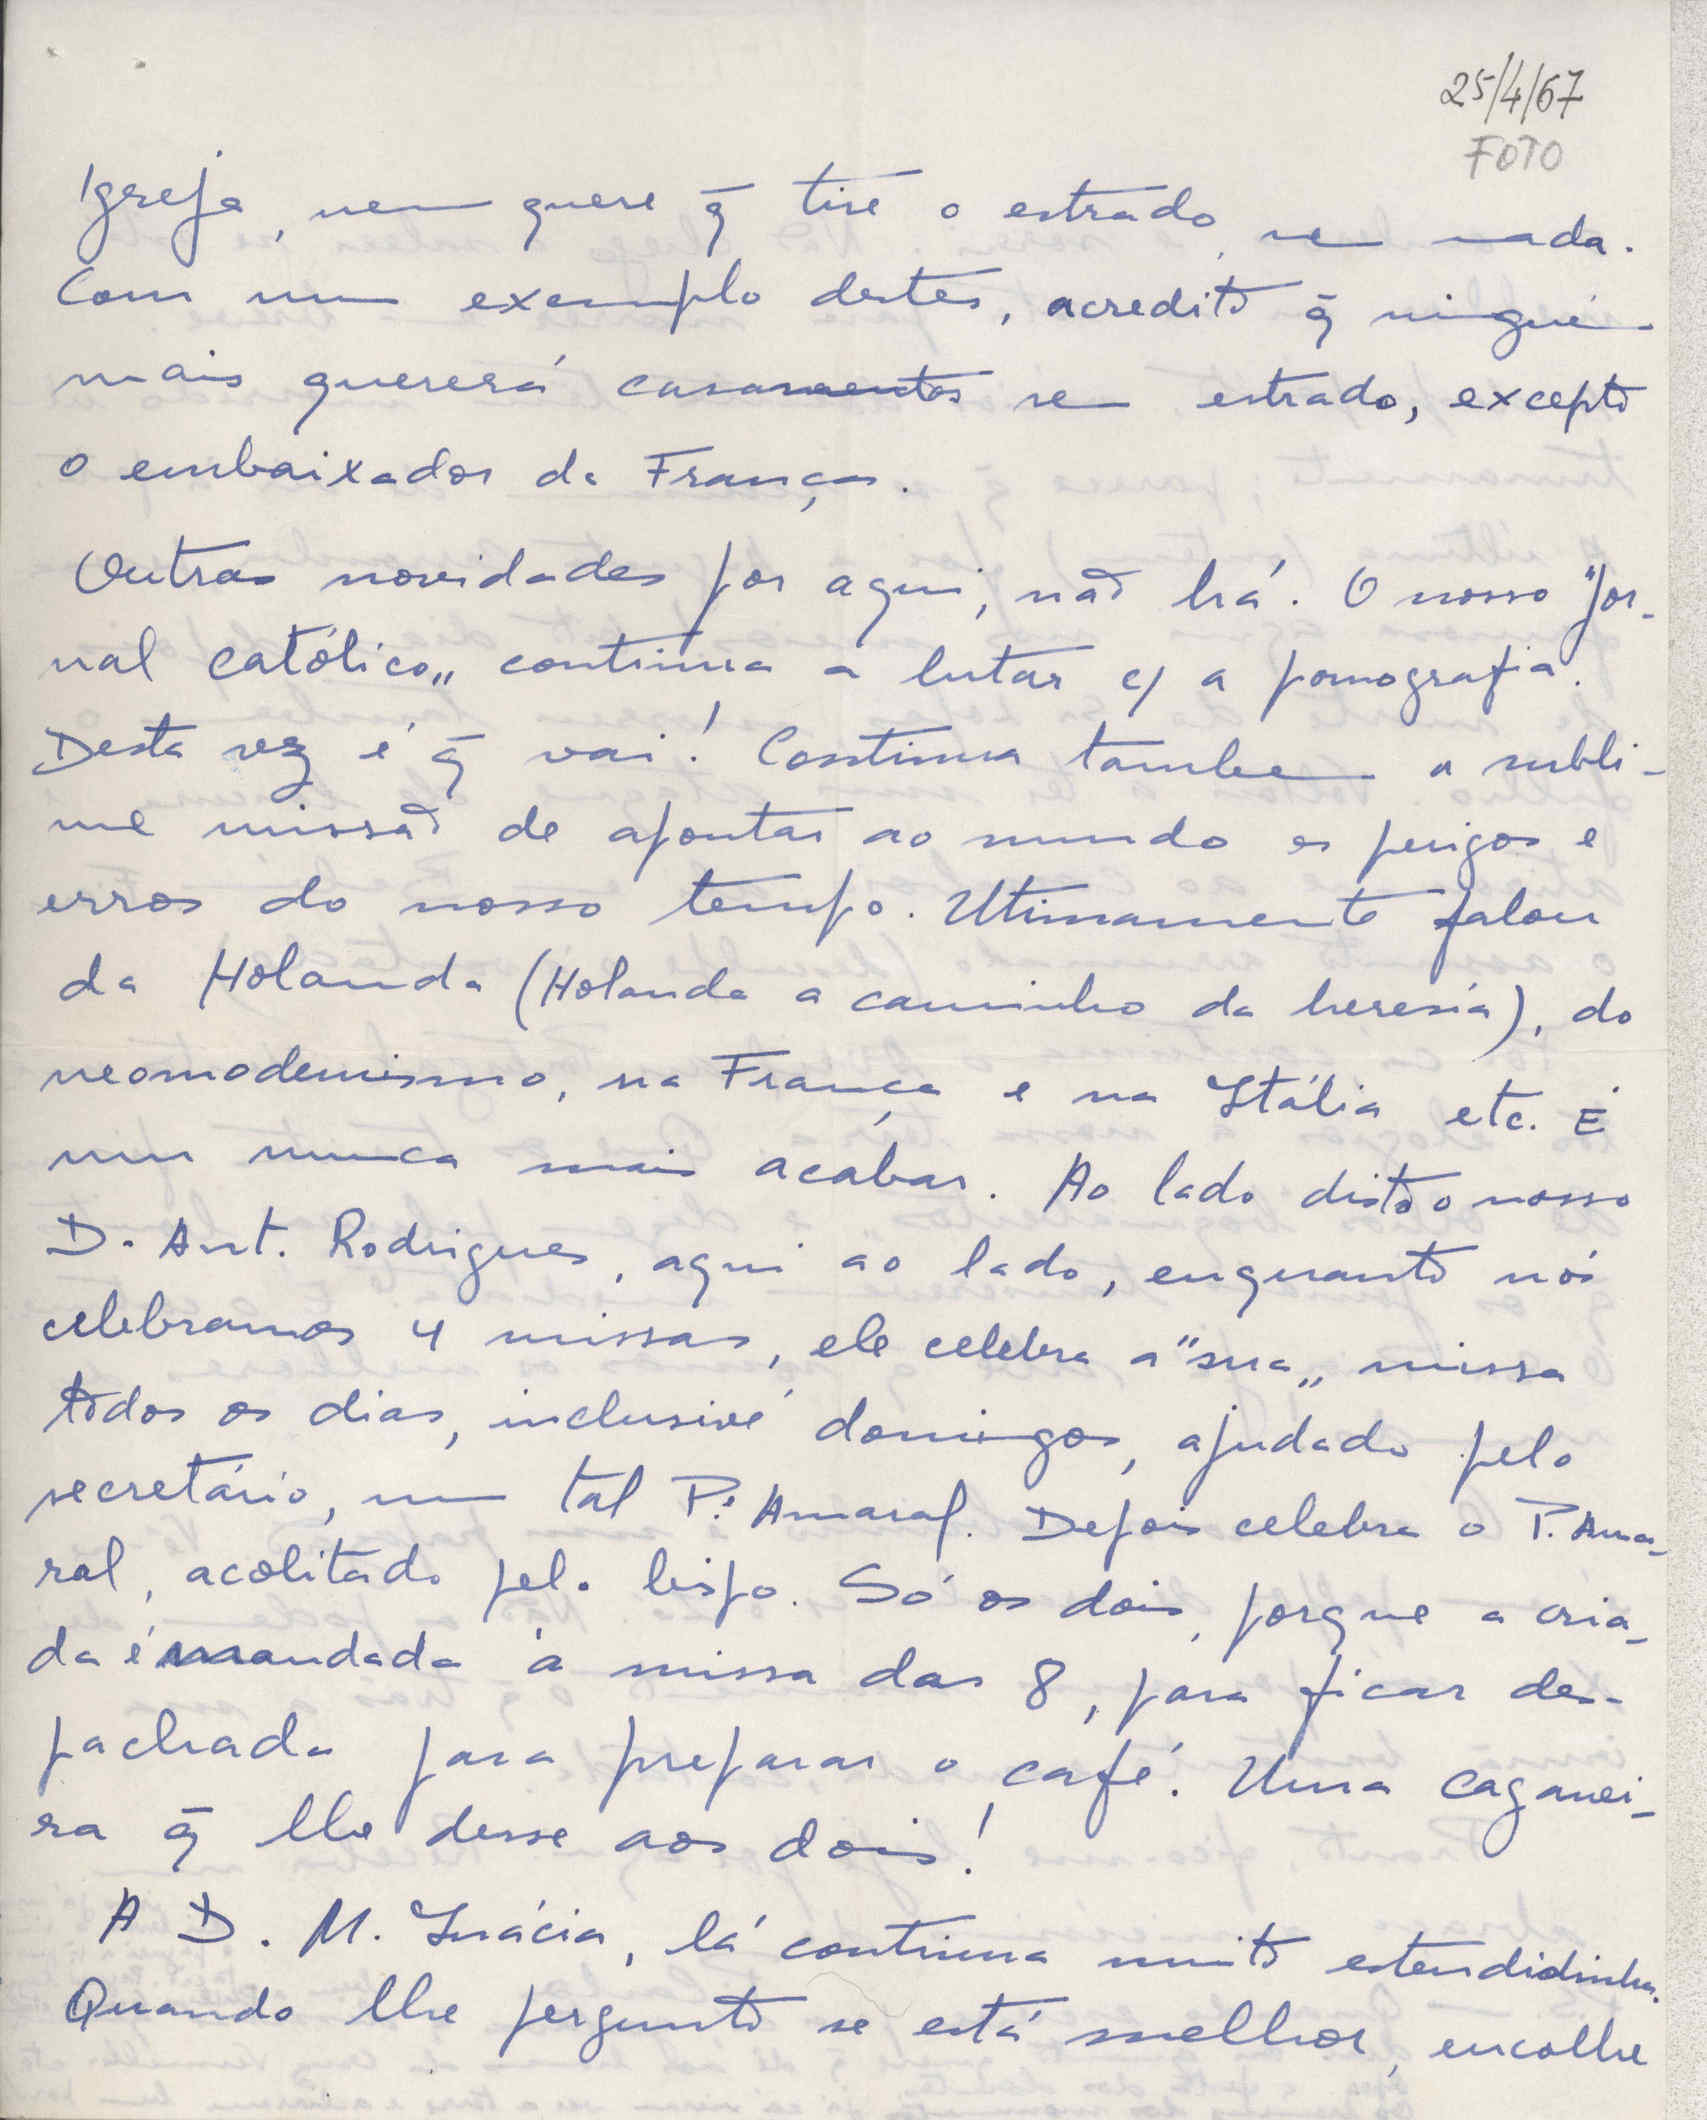 25/4/67
FOTO
Igreja, nem quere q̃ tire o estrado, nem nada.
Com um exemplo destes, acredito q̃ ninguém
mais quererá casamentos sem estrado, excepto
o embaixador da França.
Outras novidades por aqui, não há. O nosso "Jor-
nal católico" continua a lutar c/ a pornografia.
Desta vez é q̃ vai! Continua também a subli-
me missão de apontar ao mundo os perigos e
erros do nosso tempo. Utimamente falou
da Holanda (Holanda a caminho da heresia), do
neomodernismo, na França e na Itália etc. É
um nunca mais acabar. Ao lado disto o nosso
D. Ant. Rodrigues, aqui ao lado, enquanto nós
celebramos 4 missas, ele celebra a "sua" missa
todos os dias, inclusivé domingos, ajudado pelo
secretário, um tal P.e Amaral. Depois celebra o P. Ama-
ral, acolitado pelo bispo. Só os dois, porque a cria-
da é mandada à missa das 8, para ficar des-
pachada para preparar o café. Uma caganei-
ra q̃ lhe desse aos dois!
A D. M. Inácia, lá continua muito estendidinha.
Quando lhe pergunto se está melhor, encolhe